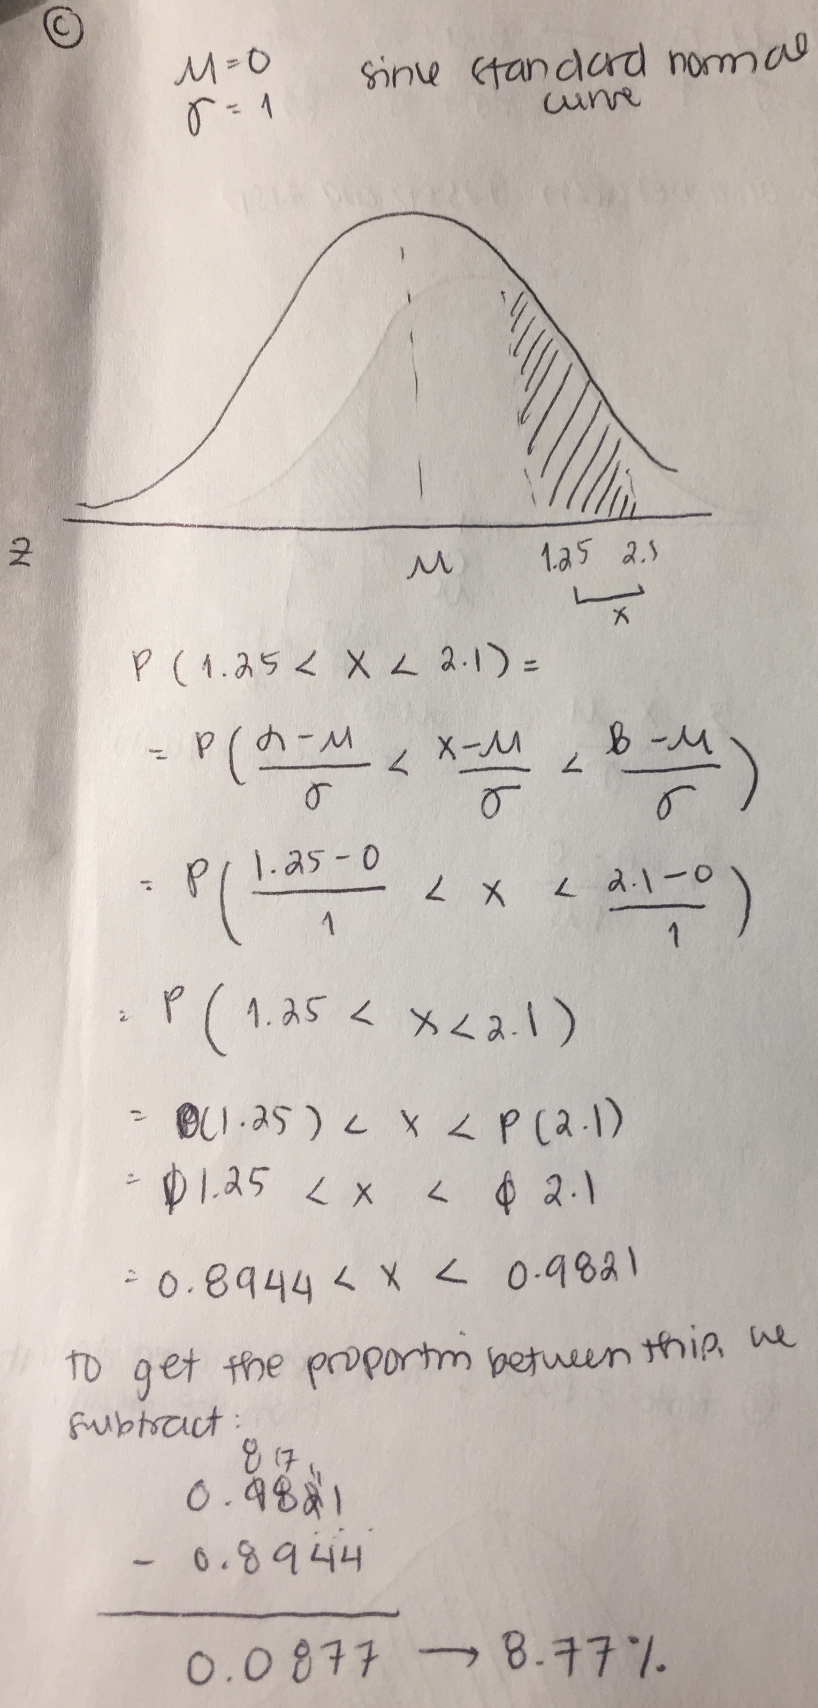 C
μ=0 since standard normal
σ=1 curve
Z
μ 1.25 2.1
x
P(1.25 < X < 2.1) =
= P((α-μ)/σ < (x-μ)/σ < (B-μ)/σ)
= P((1.25-0)/1 < x < (2.1-0)/1)
= P(1.25 < x < 2.1)
= Φ(1.25) < x < P(2.1)
= Φ1.25 < x < Φ 2.1
= 0.8944 < x < 0.9821
to get the proportin between this, we
subtract:
8 17 11
0.9821
- 0.8944
0.0877 → 8.77%